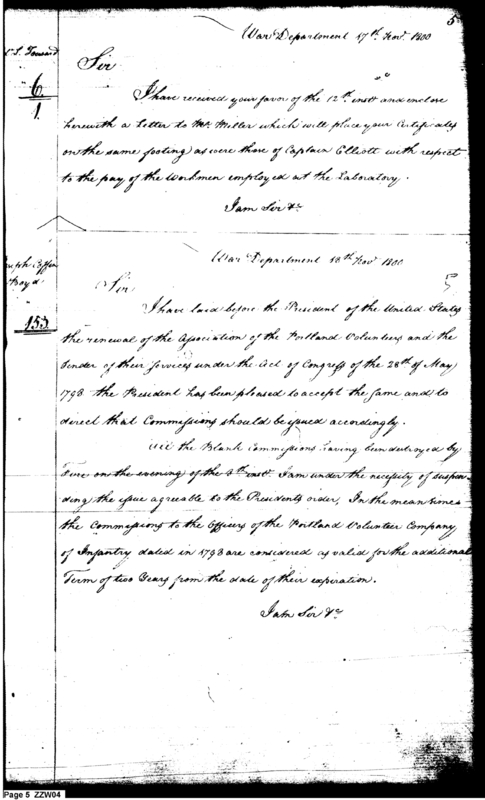 5
War Department 17th. Novr. 1800
L. Tousard
6
1
Sir
I have received your favor of the 12th. inst. and enclose
herewith a Letter to Mr. Miller which will place your Certificates
on the same footing as were those of Captain Elliott with respect
to the pay of the Workmen employed at the Laboratory.
I am Sir &c
War Department 18th. Novr. 1800
5
Joseph Coffin
Boyd
153
Sir
I have laid before the President of the United States
the renewal of the Association of the Portland Volunteers and the
Tender of their services under the Act of Congress of the 28th. of May
1798 the President has been pleased to accept the same and to
direct that Commissions should be issued accordingly.
All the Blank Commissions having been destroyed by
Fire on the evening of the 8th inst. I am under the necessity of suspen
ding the issue agreable to the Presidents order. In the mean time
the Commissions to the Officers of the Portland Volunteer Company
of Infantry dated in 1798 are considered as valid for the additional
Term of two Years from the date of their expiration.
I am Sir &c
Page 5 ZZW04